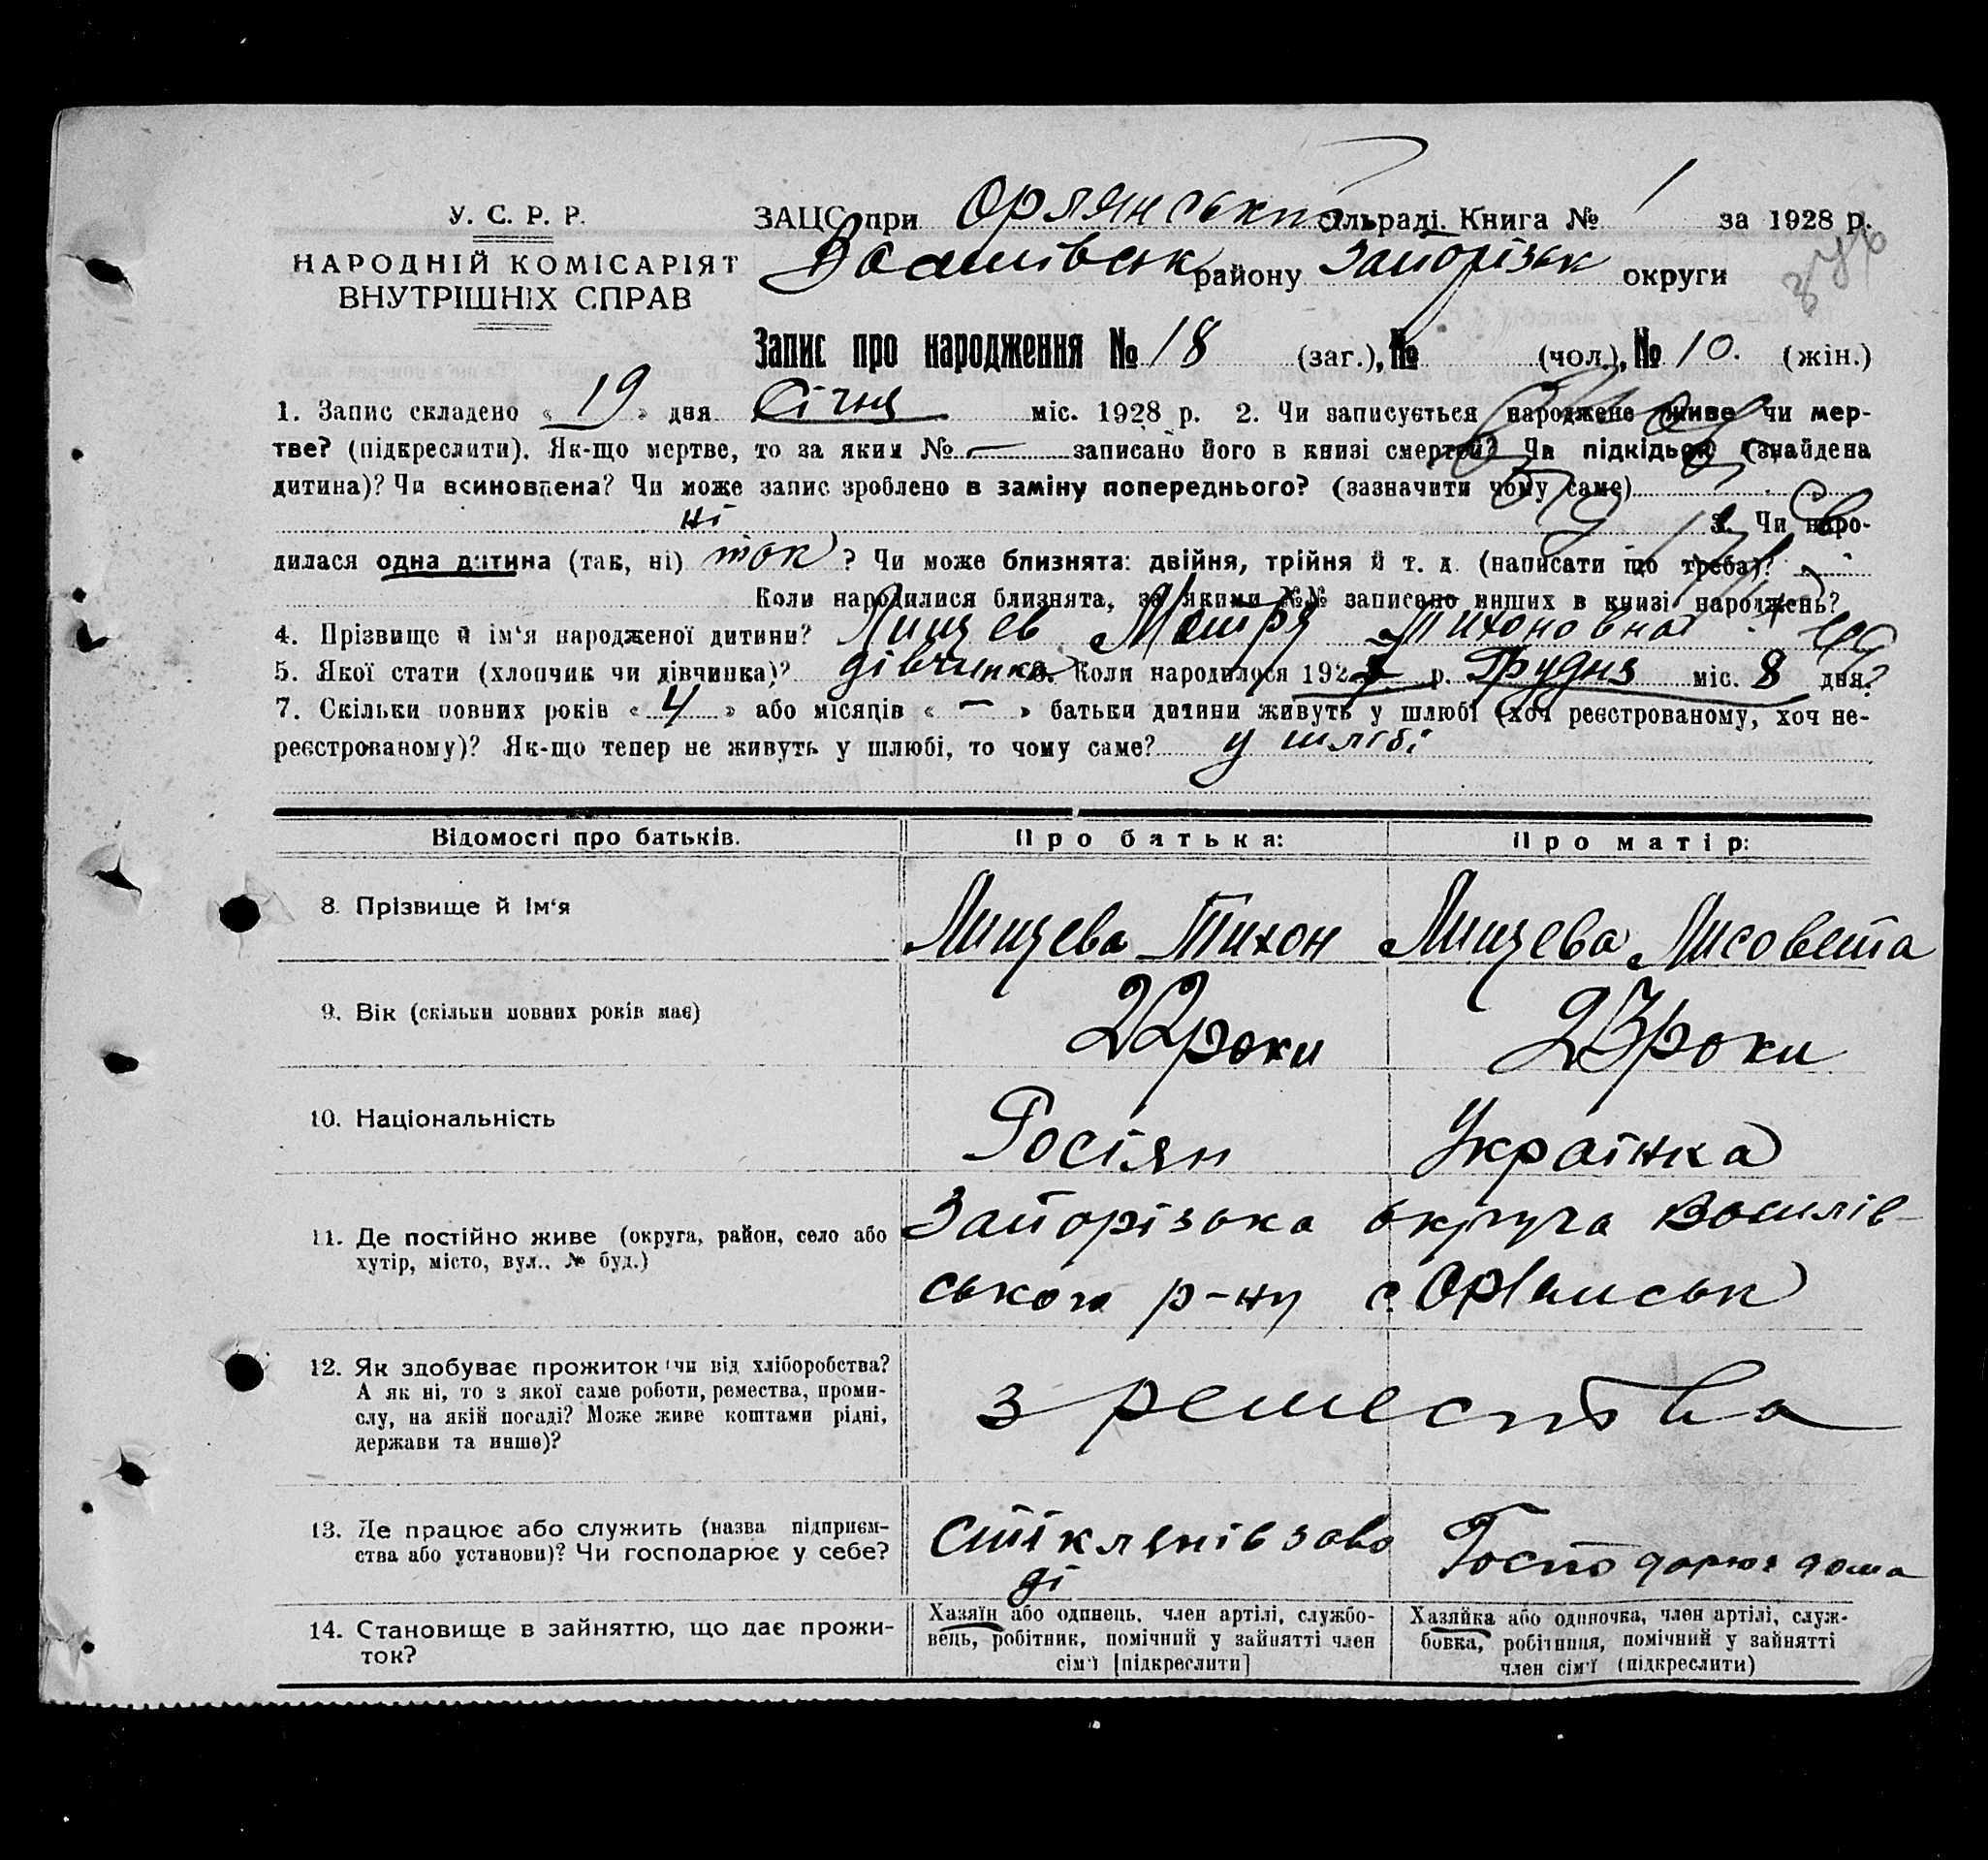 У. С. Р. Р.
НАРОДНІЙ КОМІСАРІЯТ
ВНУТРІШНІХ СПРАВ
ЗАЦС при Орлянській сільраді. Книга № 1 за 1928 р.
Василівськ району Запорізьк округи
Запис про народження № 18 (заг.), № (чол.), № 10. (жін.)
1. Запис складено « 19 » дня Січня міс. 1928 р. 2. Чи записується народжене живе чи мер-
тве? (підкреслити). Як-що мертве, то за яким № — записано його в книзі смертей? Чи підкідьок (знайдена
дитина)? Чи всиновлена? Чи може запис зроблено в заміну попереднього? (зазначити чому саме)
ні 3. Чи наро-
дилася одна дитина (так, ні) так ? Чи може близнята: двійня, трійня й т. д. (написати що треба)?
Коли народилися близнята, за якими №№ записано инших в книзі народжень?
4. Прізвище й ім'я народженої дитини? Мотря Тихоновна
5. Якої стати (хлопчик чи дівчинка)? дівчинка 6. Коли народилося 1927 р. Грудня міс. 8 дня?
7. Скільки повних років « 4 » або місяців « — » батьки дитини живуть у шлюбі (хоч реєстрованому, хоч не-
реєстрованому)? Як-що тепер не живуть у шлюбі, то чому саме? у шлюбі
Відомості про батьків.
Про батька:
Про матір:
8. Прізвище й ім'я
Тихон
Лисовета
9. Вік (скільки повних років має)
22 роки
23 роки
10. Національність
Росіян
Українка
11. Де постійно живе (округа, район, село або
хутір, місто, вул., № буд.)
Запорізька округа Василів-
ського р-ну с.
12. Як здобуває прожиток: чи від хліборобства?
А як ні, то з якої саме роботи, ремества, проми-
слу, на якій посаді? Може живе коштами рідні,
держави та инше)?
з ремества
13. Де працює або служить (назва підприєм-
ства або установи)? Чи господарює у себе?
дома
14. Становище в зайняттю, що дає прожи-
ток?
Хазяїн або одинець, член артілі, службо-
вець, робітник, помічний у зайнятті член
сім'ї [підкреслити]
Хазяйка або одиночка, член артілі, служ-
бовка, робітниця, помічний у зайнятті
член сім'ї (підкреслити)